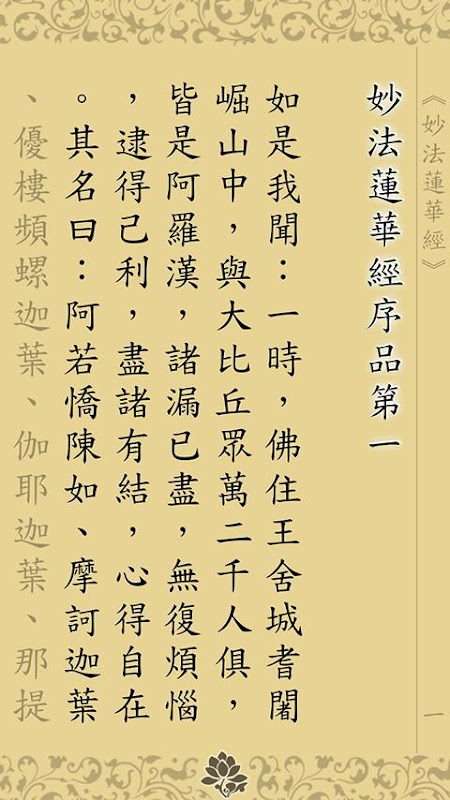 《妙法蓮華經》
一
妙法蓮華經序品第一
如是我聞：一時，佛住王舍城耆闍
崛山中，與大比丘眾萬二千人俱，
皆是阿羅漢，諸漏已盡，無復煩惱
，逮得己利，盡諸有結，心得自在
。其名曰：阿若憍陳如、摩訶迦葉
、優樓頻螺迦葉、伽耶迦葉、那提